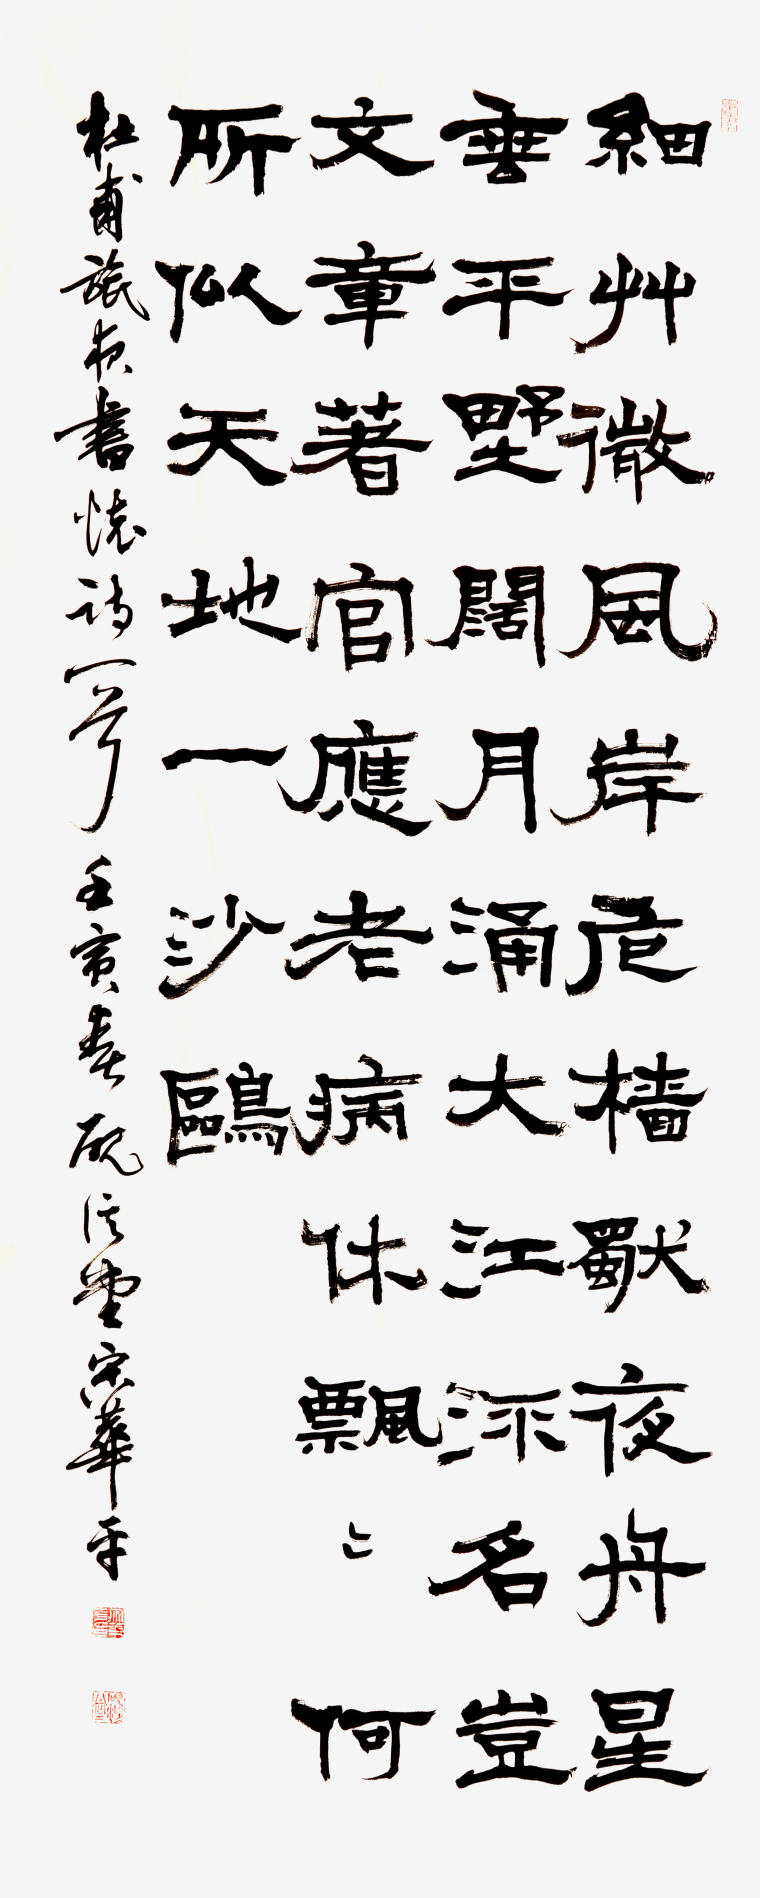 細艸微風岸危檣獨夜舟星
垂平野闊月涌大江流名豈
文章著官應老病休飄〻何
所似天地一沙鷗
杜甫旅夜書懷詩一首 壬寅春 堂宋華平